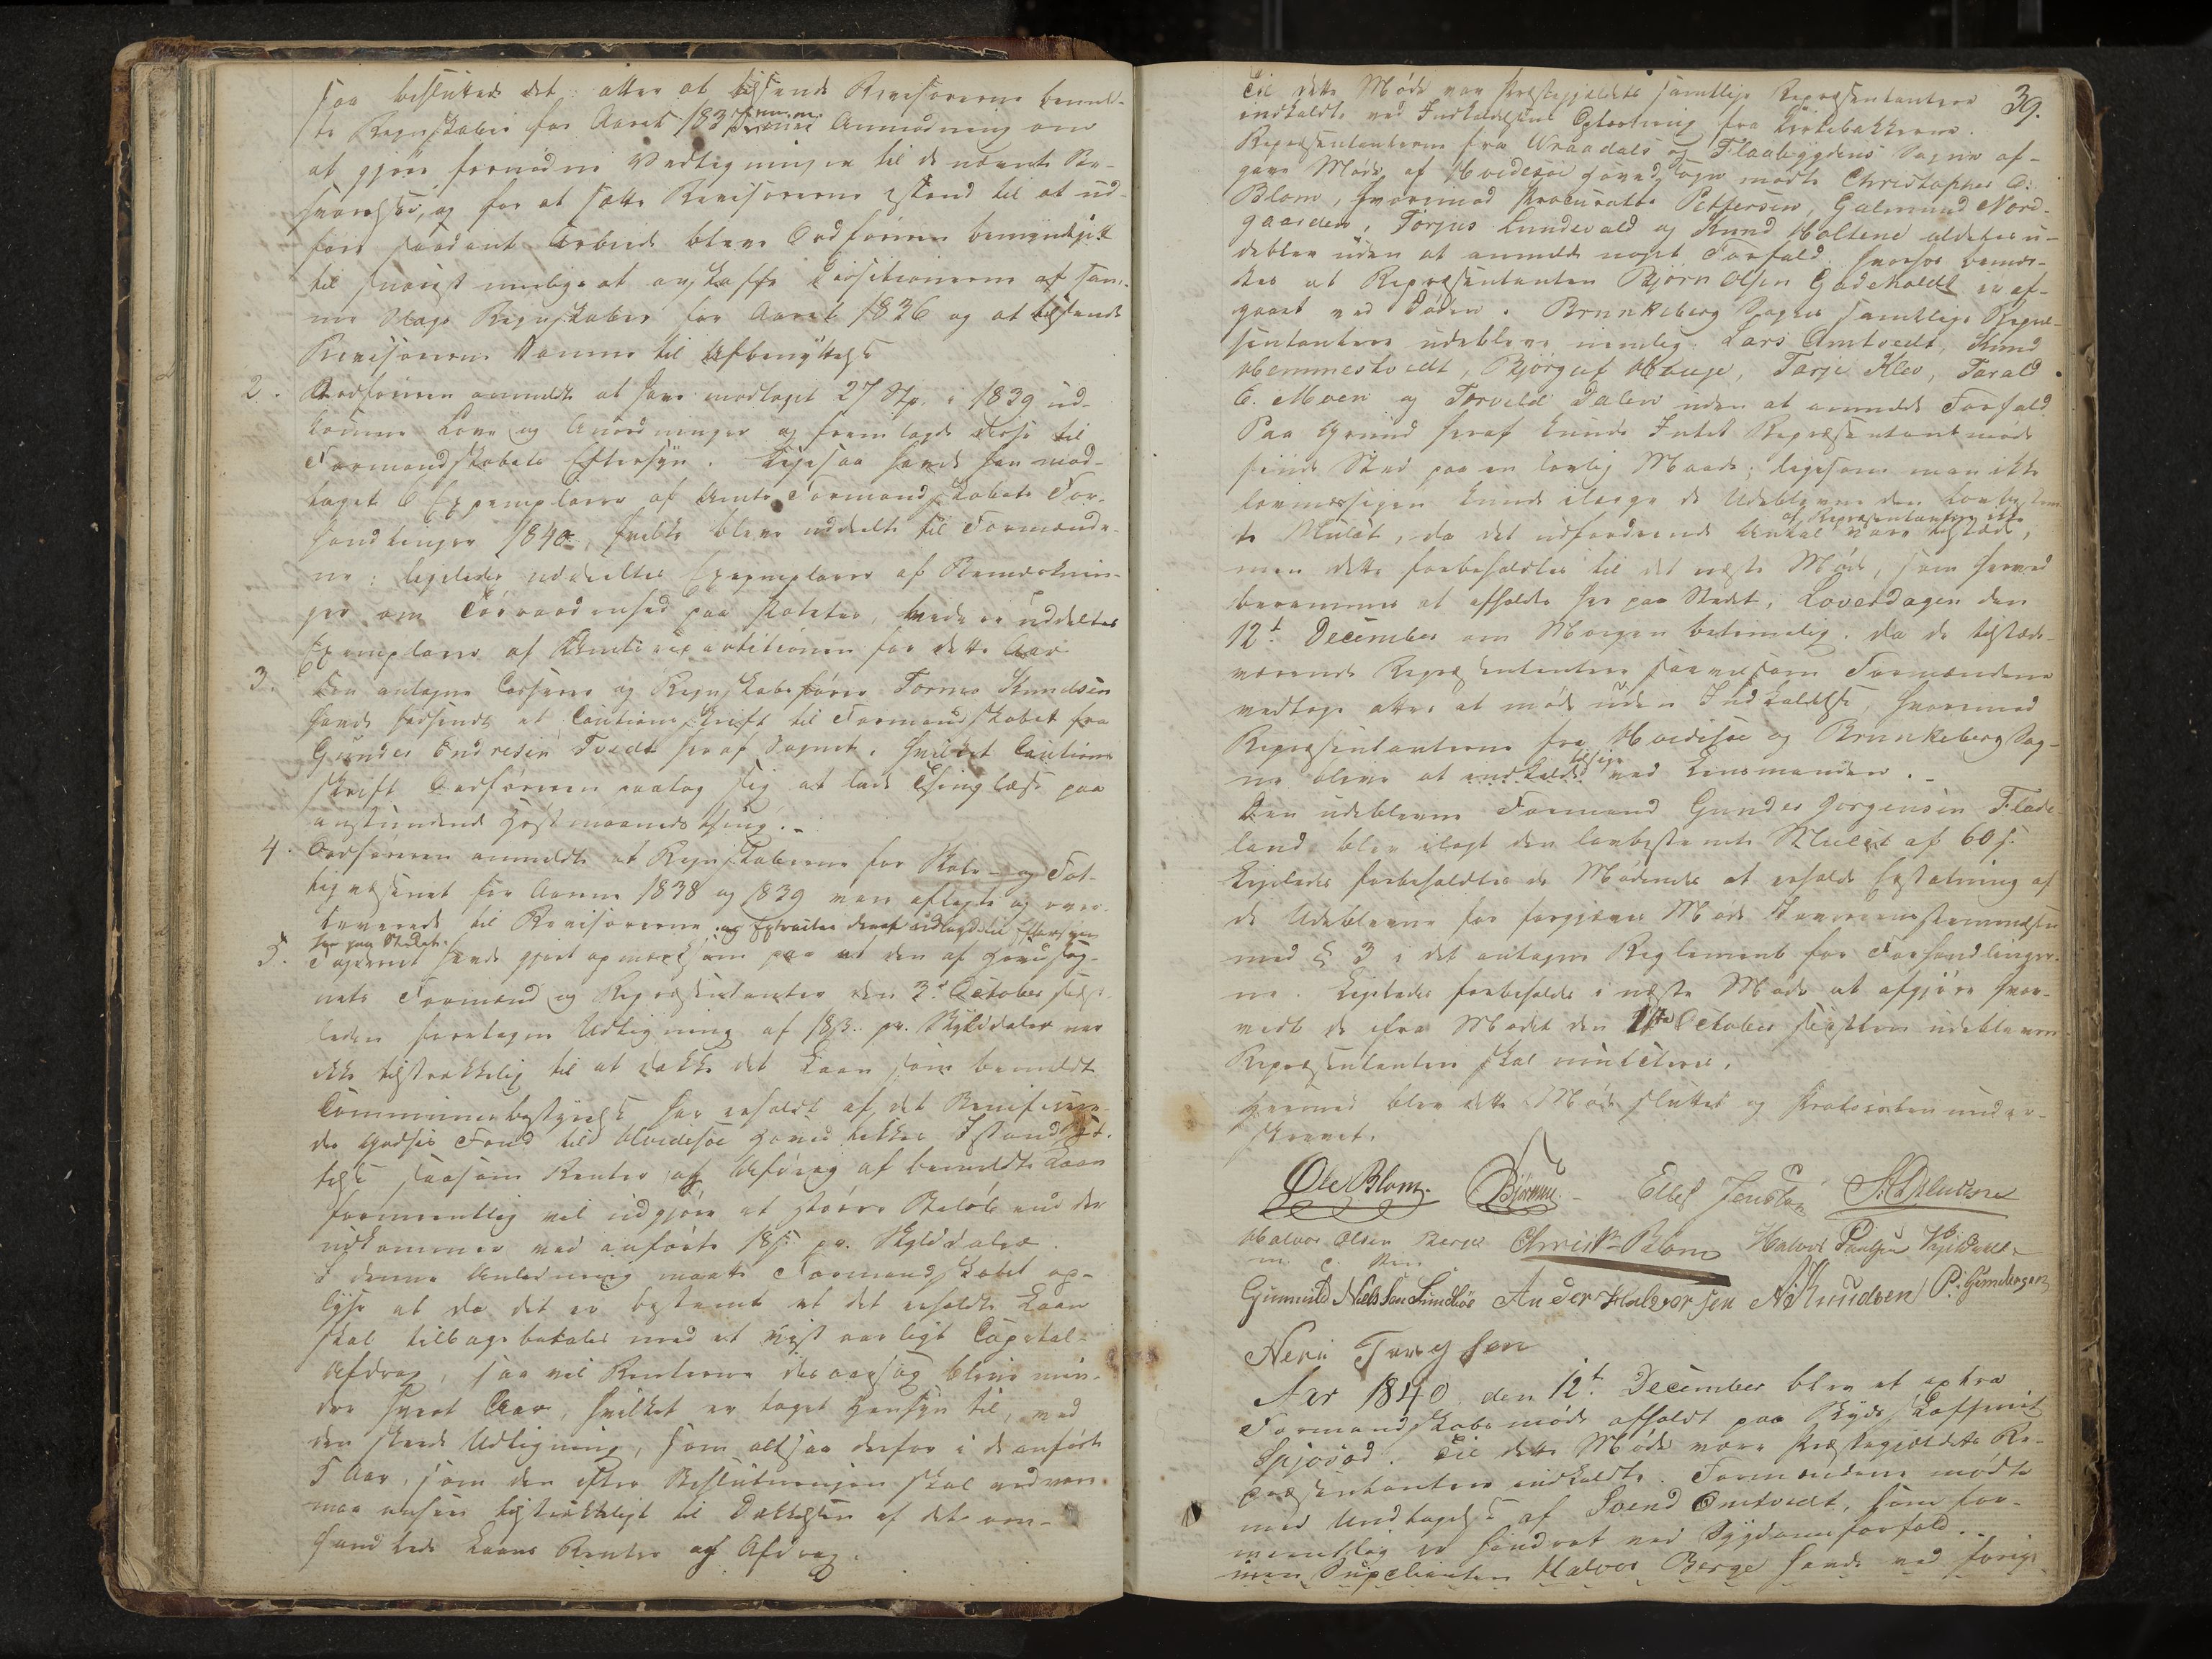 saa besluttedes det atter at tilsende Revisorerne bemeld-
te Regnskaber for Aaret 1837 Anmodning om
at gjøre fornødne Vedtegninger til de nævnte Be-
svarelser, og for at sætte Revisorerne istand til at ud-
føre saadant Arbeid blev Ordføreren bemyndiget
til snarest muligt at anskaffe af sam-
me Slags Regnskaber for Aaret 1836 og at tilsende
Revisorerne samme til Afbenyttelse
2. Ordføreren anmeldte at have modtaget 27 Stk. i 1839 ud-
komne Love og Anordninger og fremlagde disse til
Formandskabets Eftersyn. Ligesaa havde han mod-
taget 6 Exemplarer af Amts Formandskabets For-
handlinger 1840, hvilke bleve uddeelte til Formænde-
ne; ligeledes uddeeltes Exemplarer af Bemærknin-
ger om Tørraadenhed paa Poteter, videre uddeltes
Exemplarer af Amtsrepartitionen for dette Aar
3. Den antagne Casserer og Regnskabsfører Tormo Knudsen
havde indsendt et Cautionsskrift til Formandskabet fra
Gunder Endresen Tvedt her af Sognet, hvilket Cautions
skrift Ordføreren paatog sig at lade Thinglæse paa
anstundende Høstmaaneds Thing.
4. Ordføreren anmeldte at Regnskaberne for Skole- og Fat-
tigvæsenet for Aarene 1838 og 1839 vare aflagte og over-
leverede til Revisorerne og Extracter deraf udlagde til Eftersyn
her paa Stedet.
5. Fogderiet havde gjort opmærksom paa at den af Hovedsog-
nets Formænd og Repræsentanter den 3d October sidst-
leden foretagne Udligning af 18 s. pr. Skylddaler var
ikke tilstrækkelig til at dække det Laan som bemeldte
Communebestyrelse har erholdt af det Beneficere-
de Godses Fond til Hvidesøe Hovedkirkes Istandsæt-
telse saasom Renter og Afdrag af bemeldte Laan
formeentlig vil udgjøre et større Beløb end der
udkommer ved anførte 18 s. pr. Skylddaler.
I denne Anledning maatte Formandskabet op-
lyse at da det er bestemt at det erholdte Laan
skal tilbagebetales med et vist aarligt Capital-
Afdrag, saa vil Renterne desaarsag blive min-
dre hvert Aar, hvilket er taget Hensyn til, ved
den skeede Udligning, som altsaa derfor i de anførte
5 Aar, som den efter Beslutningen skal vedvare
maa ansees tilstrækkeligt til Dækkelsen af det om-
handlede Laans Renter og Afdrag.
39.
Til dette Møde var Præstegjeldets samtlige Repræsentantere
indkaldte ved Indkaldelsens Oplæsning fra Kirkebakkerne.
Repræsentanterne fra Wraadals og Flaabygdens Sogne af-
gave Møde, af Hvidesøe Hovedsogn mødte Christopher O.
Blom, hvorimod Procurator Pettersen, Galmund Nord-
gaarden, Torjus Lundevald og Knud Holtene aldeles u-
deblev uden at anmelde noget Forfald. Herhos bemær-
kes at Repræsentanten Bjørn Olsen Godeholdt er af-
gaaet ved Døden. Brunkeberg Sogns samtlige Repræ-
sentantere udebleve nemlig: Lars Amtvedt, Knud
Hemmestvedt, Bjørguf Hauge, Tarje Klev, Tarald
E. Moen og Torvild Dalen uden at anmelde Forfald.
Paa Grund heraf kunde Intet Repræsentantmøde
finde Sted paa en lovlig Maade; ligesom man ikke
lovmæssigen kunde ilægge de Udeblevne den lovbestem-
te Mulct, da det udfordrende Antal af Repræsentantere ikke vare tilstede,
men dette forbeholdtes til det næste Møde, som herved
berammes at afholdes her paa Stedet, Løverdagen den
12t December om Morgen betimelig. Da de tilstæde-
værende Repræsentantere saavelsom Formændene
vedtoge atter at møde uden Indkaldelse, hvorimod
Repræsentanterne fra Hvidesøe og Brunkeberg Sog-
ne blive at tilsige ved Lensmanden.
Den udeblevne Formand Gunder Jørgensen Flade
land blev ilagt den lovbestemte Mulct af 60 s.
Ligeledes forbeholdtes de Mødende at erholde Erstatning af
de Udeblevne for forgjæves Møde i Overeensstemmelse
med § 3 i det antagne Reglement for Forhandlinger-
ne. Ligeledes forbeholdes i næste Møde at afgjøre hvor-
vidt de fra Mødet den 1ste October sidstleden udeblevne
Repræsentanter skal mulcteres.
Hermed blev dette Møde sluttet og Protocollen under-
skrevet.
Ole Blom. Bjørnsen Ellef Jensson
Halvor Olsen Berge Christr Blom Halvor Paulsen
m. P. Pen
Gunnuld Nielssen Sundbøe Ander Halvorsen A Knudsen P. Gundersen
Neri Targesen
Aar 1840 den 12t December blev et extra
Formandskabsmøde afholdt paa Skydsskaffent
Spjosod. Til dette Møde vare Præstegjeldets Re-
præsentantere indkaldte. Formændene mødte
med Undtagelse af Svend Omtvedt, som for-
meentlig er hindret ved Sygdomsforfald.
men Suppleanten Halvor Berge havde ved forrige